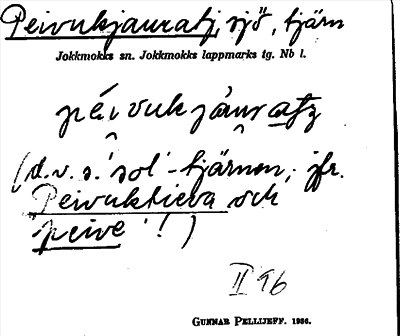 Peivukjauratj, sjö, tjärn
Jokkmokks sn. Jokkmokks lappmarks tg. Nb l.
péivuk jåuratz
(d.v.s. 'sol'-tjärnen, jfr.
Peivuktieva och
'peive'!)
II 96
GUNNAR PELLIJEFF. 1956.